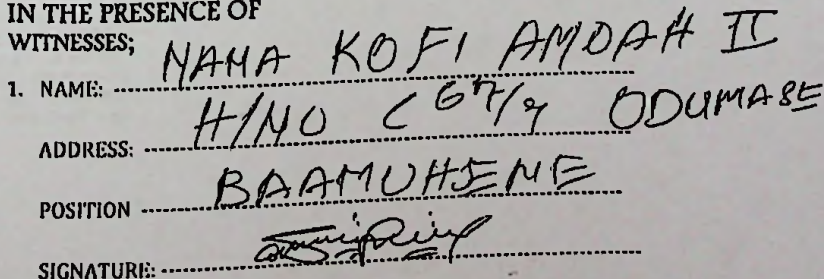 IN THE PRESENCE OF
WITNESSES;
1. NAME: NAMA KOFI AMOAH II
ADDRESS: H/NO C 67/9 ODUMASE
POSITION BAAMUHENE
SIGNATURE: